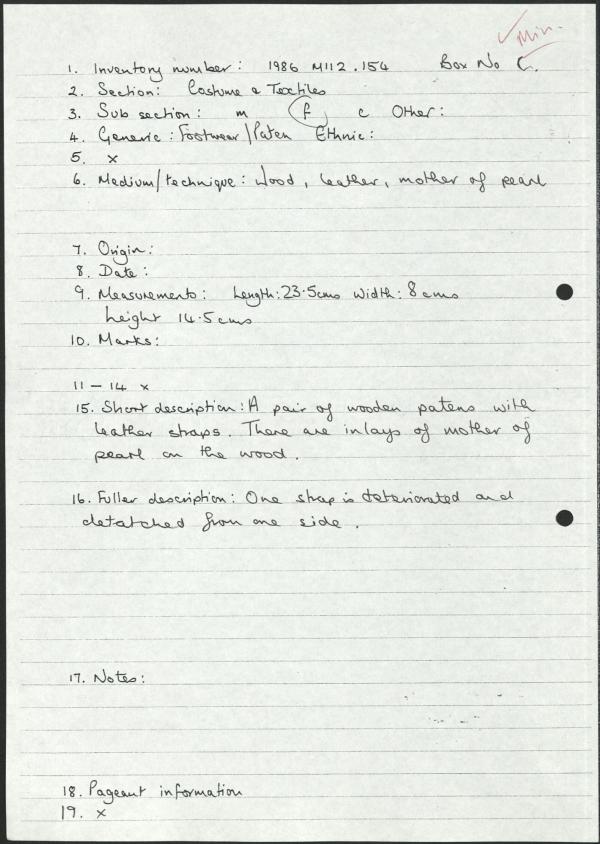 ✓ Min.
1. Inventory number: 1986 M112.154 Box No C.
2. Section: Costume & Textiles
3. Sub section: m f c Other:
4. Generic: Footwear/Paten Ethnic:
5. x
6. Medium/technique: Wood, leather, mother of pearl
7. Origin:
8. Date:
9. Measurements: Length: 23.5cms Width: 8 cms
height 14.5 cms
10. Marks:
11 - 14 x
15. Short description: A pair of wooden patens with
leather straps. There are inlays of mother of
pearl on the wood.
16. Fuller description: One strap is deteriorated and
detatched from one side.
17. Notes:
18. Pageant information
19. x